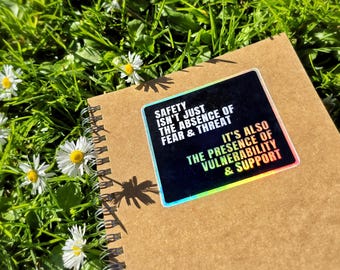 SAFETY
ISN'T JUST
THE ABSENCE OF
FEAR & THREAT
IT'S ALSO
THE PRESENCE OF
VULNERABILITY
& SUPPORT